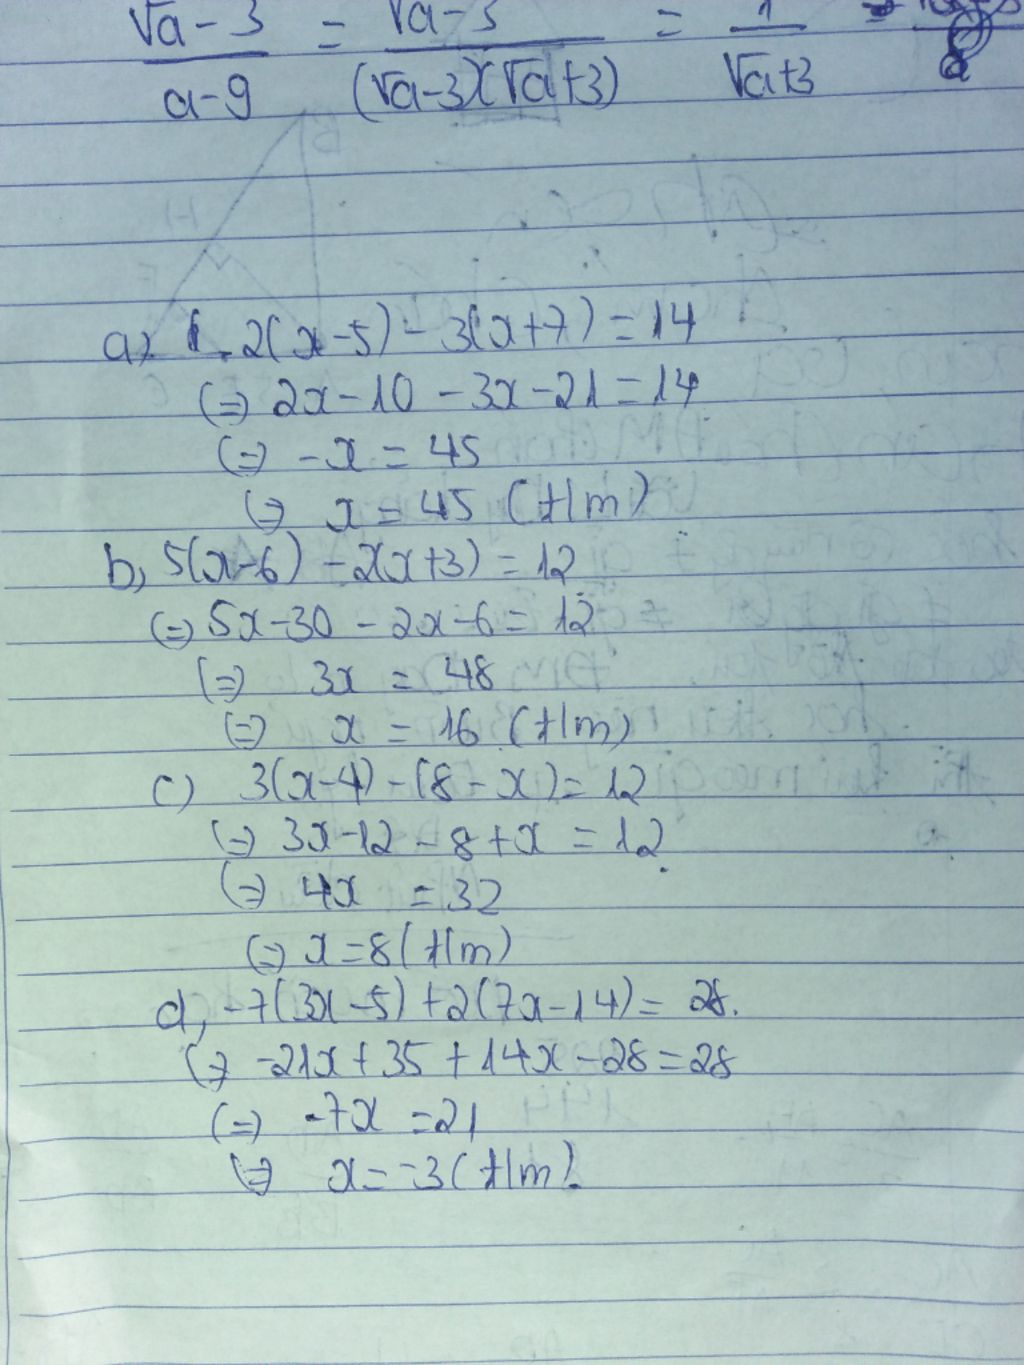 √a-3 / a-9 = √a-3 / (√a-3)(√a+3) = 1 / √a+3 =
a, 1. 2(x-5) - 3(x+7) = 14
(=) 2x-10 - 3x-21 = 14
(=) -x = 45
(=) x = 45 (t/m)
b, 5(x-6) - 2(x+3) = 12
(=) 5x-30 - 2x-6 = 12
(=) 3x = 48
(=) x = 16 (t/m)
c) 3(x-4) - (8 - x) = 12
(=) 3x-12 - 8+x = 12
(=) 4x = 32
(=) x = 8 (t/m)
d, -7(3x-5) + 2(7x-14) = 28.
(=) -21x + 35 + 14x - 28 = 28
(=) -7x = 21
(=) x = -3 (t/m).